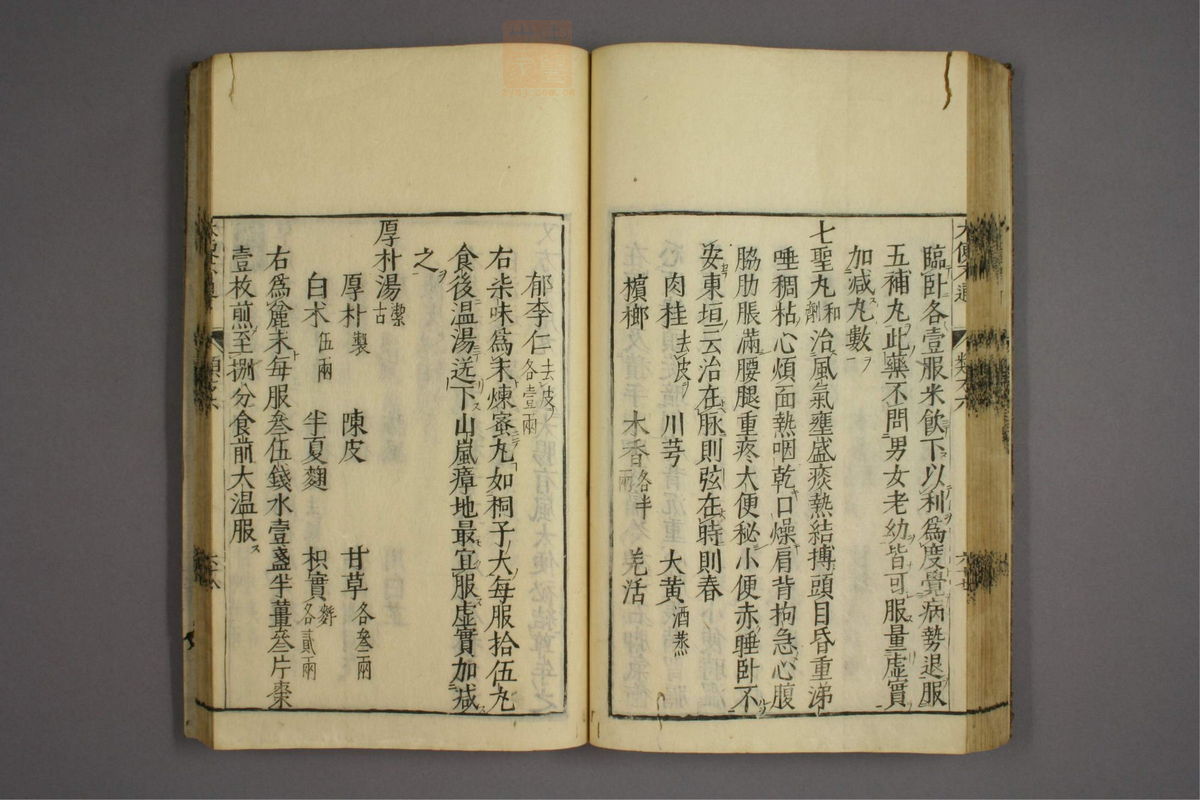 臨臥各壹服米飲下以利為度覺病勢退服
五補丸此藥不問男女老幼皆可服量虛實
加減丸數
七聖丸和劑治風氣壅盛痰熱結搏頭目昏重涕
唾稠粘心煩面熱咽乾口燥肩背拘急心腹
脇肋脹滿腰腿重疼大便秘小便赤睡臥不
安東垣云治在脉則弦在時則春
肉桂去皮 川芎 大黃酒蒸
檳榔 木香各半兩 羌活
郁李仁去皮各壹兩
右柒味為末煉蜜丸如桐子大每服拾伍丸
食後溫湯送下山嵐瘴地最宜服虛實加減
之
厚朴湯潔古
厚朴製 陳皮 甘草各叁兩
白朮伍兩 半夏麯 枳實麩各貳兩
右為麄末每服叁伍錢水壹盞半薑叁片棗
壹枚煎至捌分食前大溫服